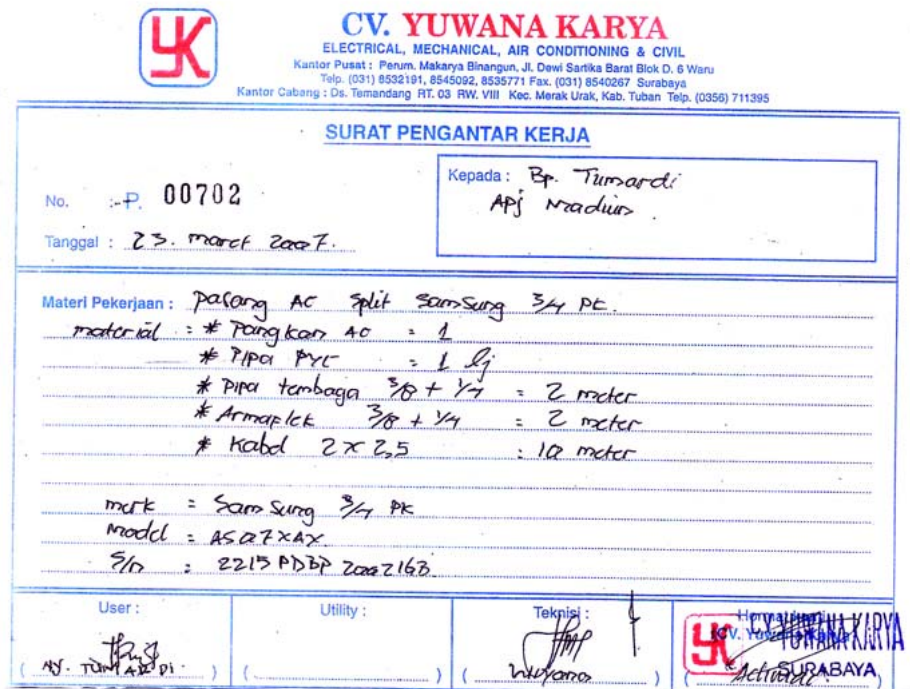 YK
CV. YUWANA KARYA
ELECTRICAL, MECHANICAL, AIR CONDITIONING & CIVIL
Kantor Pusat : Perum. Makarya Binangun, Jl. Dewi Sartika Barat Blok D. 6 Waru
Telp. (031) 8532191, 8545092, 8535771 Fax. (031) 8540267 Surabaya
Kantor Cabang : Ds. Temandang RT. 03 RW. VIII Kec. Merak Urak, Kab. Tuban Telp. (0356) 711395
SURAT PENGANTAR KERJA
No. :-P. 00702
Tanggal : 23. maret 2007.
Kepada : Bp. Tumardi
APJ Madiun.
Materi Pekerjaan : Pasang AC Split SamSung 3/4 PK.
material : * Pangkon AC : 1
* PIPA PVC : 1 lj
* PIPA tembaga 3/8 + 1/4 : 2 meter
* Armaflek 3/8 + 1/4 : 2 meter
* Kabel 2 x 2,5 : 10 meter
merk = SamSung 3/4 PK
Model : AS07XAX
S/n : 2215 PDBP
User :
Utility :
Teknisi :
Hormat kami
CV. Yuwana Karya
CV. YUWANA KARYA
SURABAYA